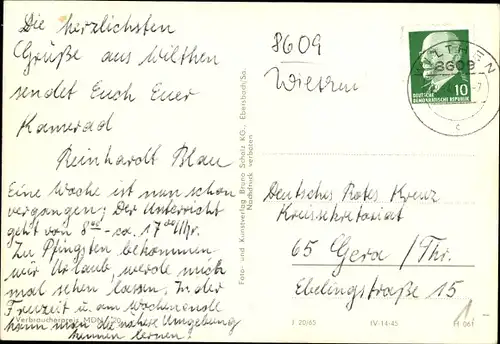 Die herzlichsten
Grüße aus Wilthen
sendet Euch Euer
Kamerad
Reinhardt Blau
Eine Woche ist nun schon
vergangen; Der Unterricht
geht von 8⁰⁰ - ca. 17⁰⁰ Uhr.
Zu Pfingsten bekommen
wir Urlaub, werde mich
mal sehen lassen. In der
Freizeit u. am Wochenende
kann man die nähere Umgebung
kennen lernen!
Verbraucherpreis MDN
Foto- und Kunstverlag Bruno Scholz KG., Ebersbach/Sa.
Nachdruck verboten
8609
Wilthen
WILTHEN
8609
c
10
DEUTSCHE
DEMOKRATISCHE REPUBLIK
Deutsches Rotes Kreuz
Kreissekretariat
65 Gera / Thr.
Ebelingstraße 15
I 20/65 IV-14-45 H 061